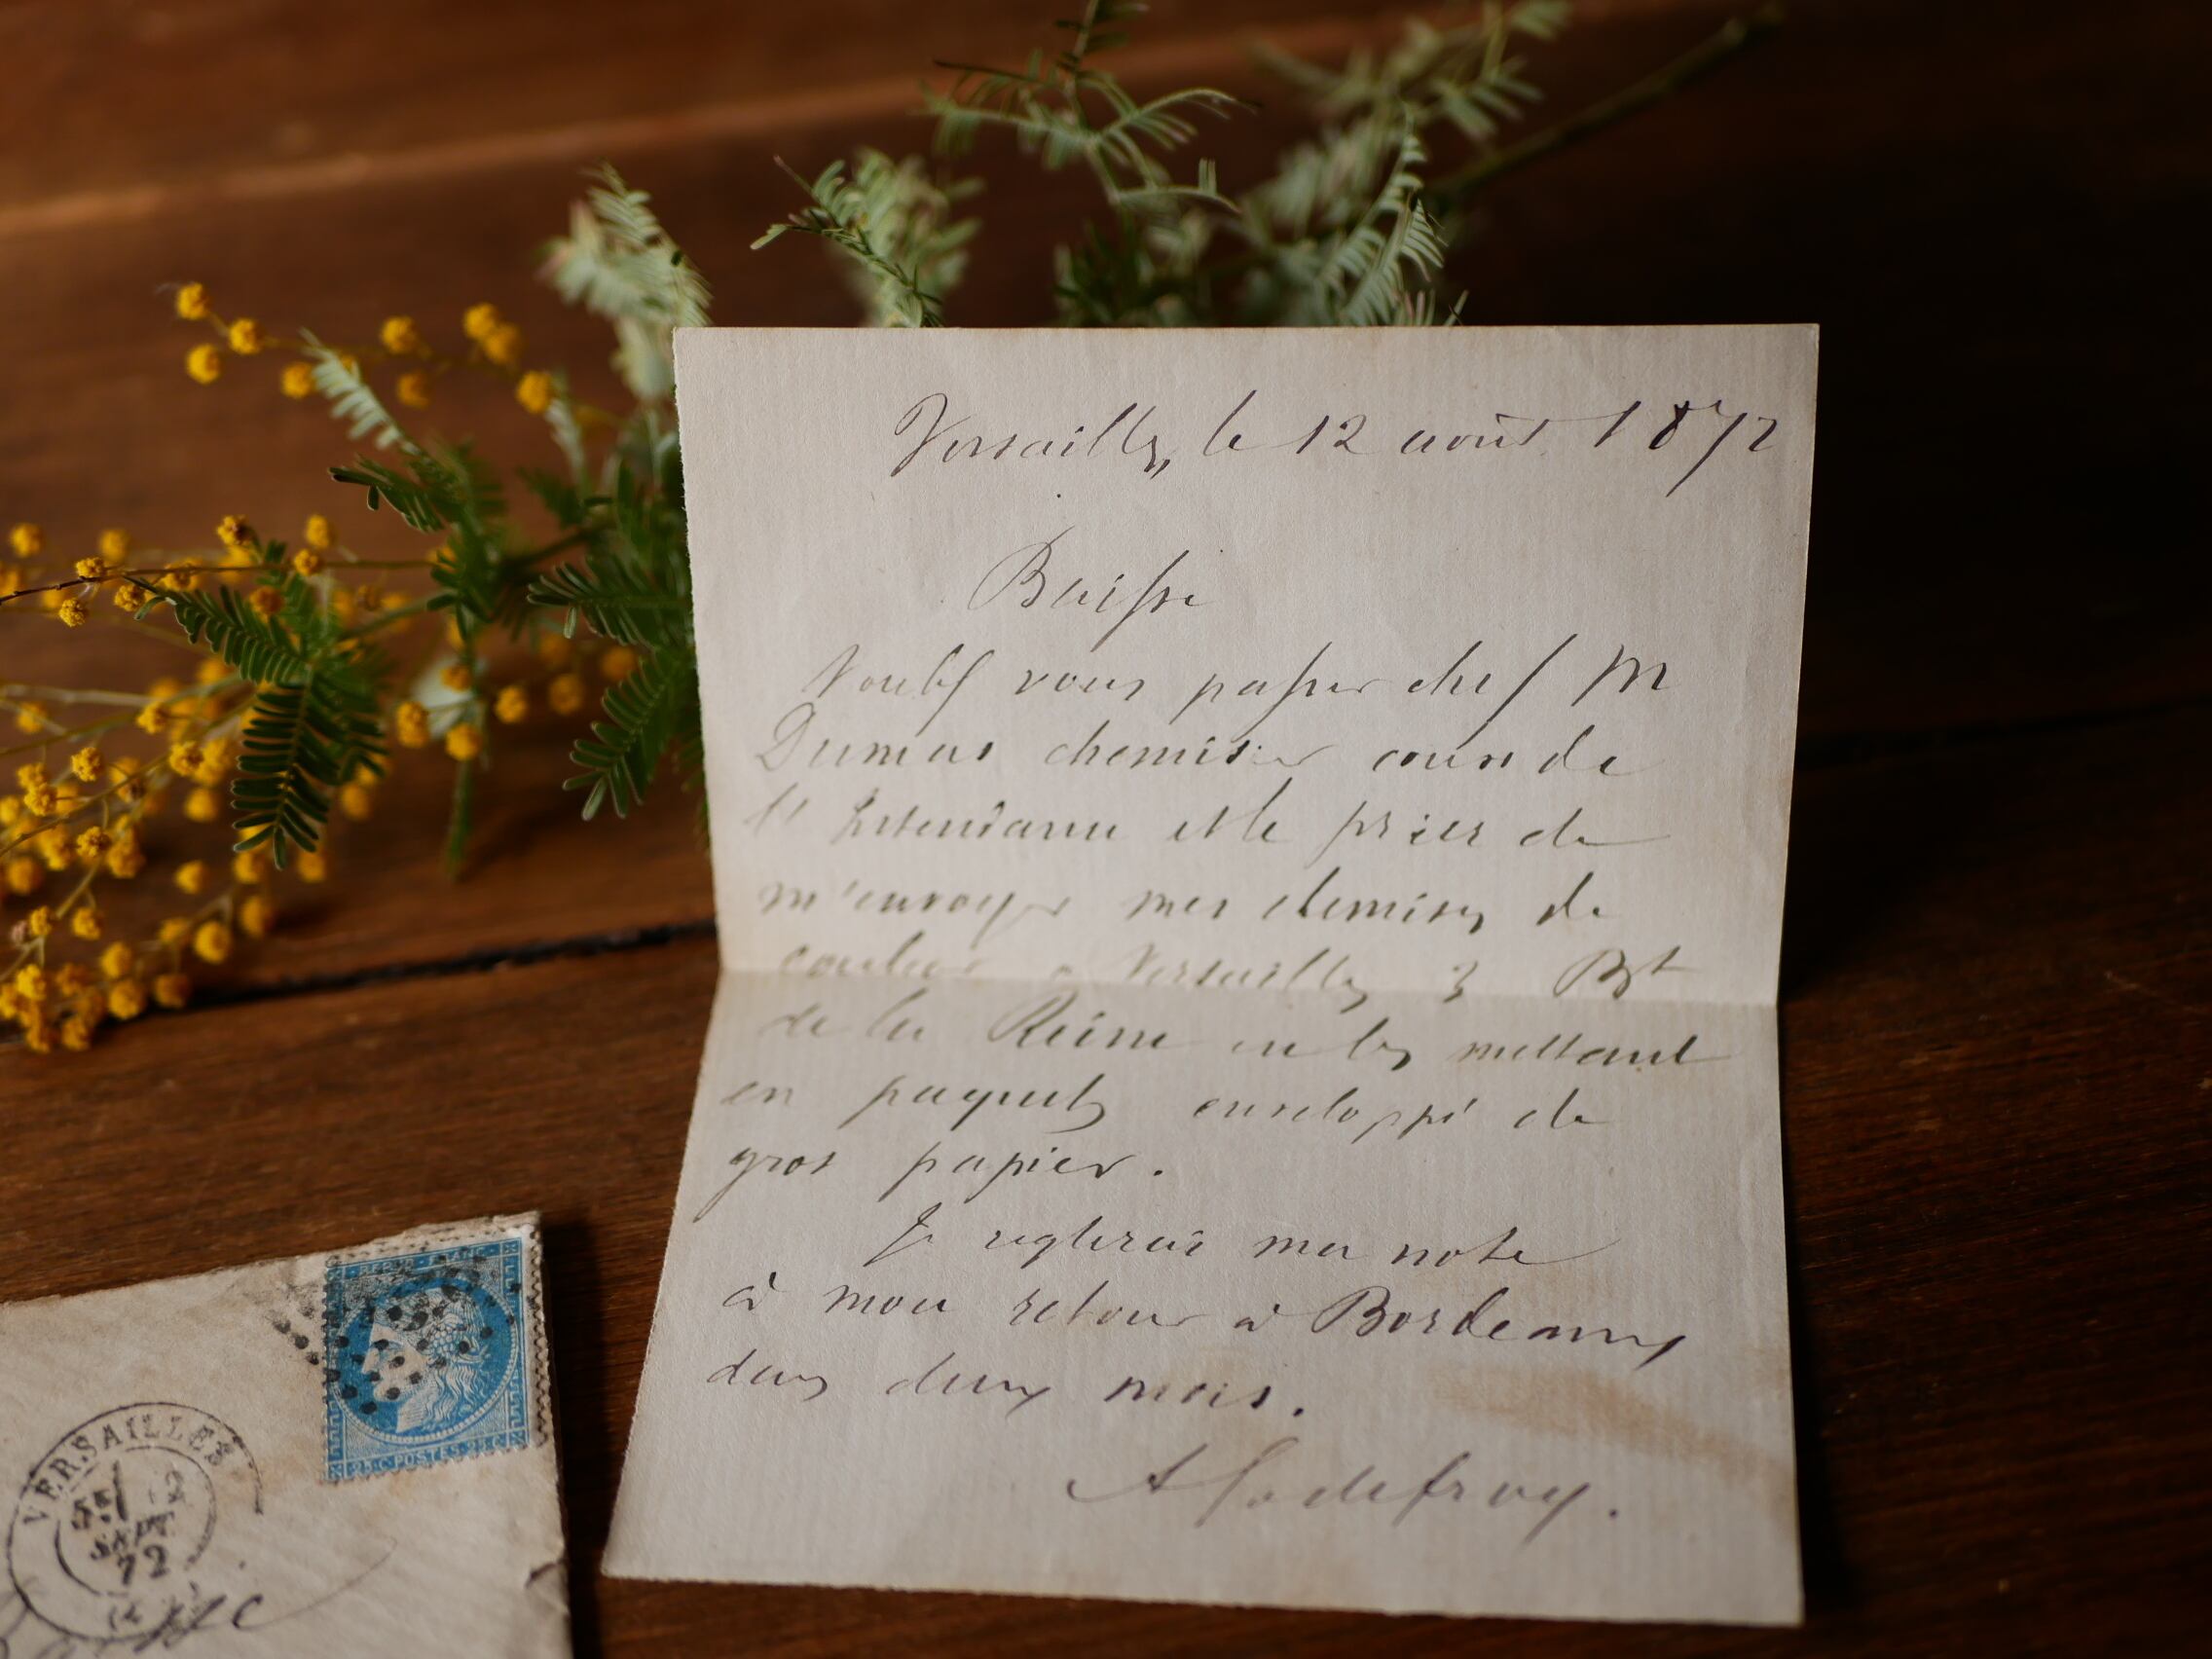 Versailles, le 12 août 1872
Baisse
Voulez vous passer chez M
Dumas chemisier cours de
l'Intendance et le prier de
m'envoyer mes chemises de
couleur a Versailles 3 Bt
de la Reine en les mettant
en paquets enveloppé de
gros papier.
Je reglerai ma note
à mon retour à Bordeaux
dans deux mois.
A Godefroy.
REPUB FRANC
25 C POSTES 25 C
VERSAILLES
SEPT
72